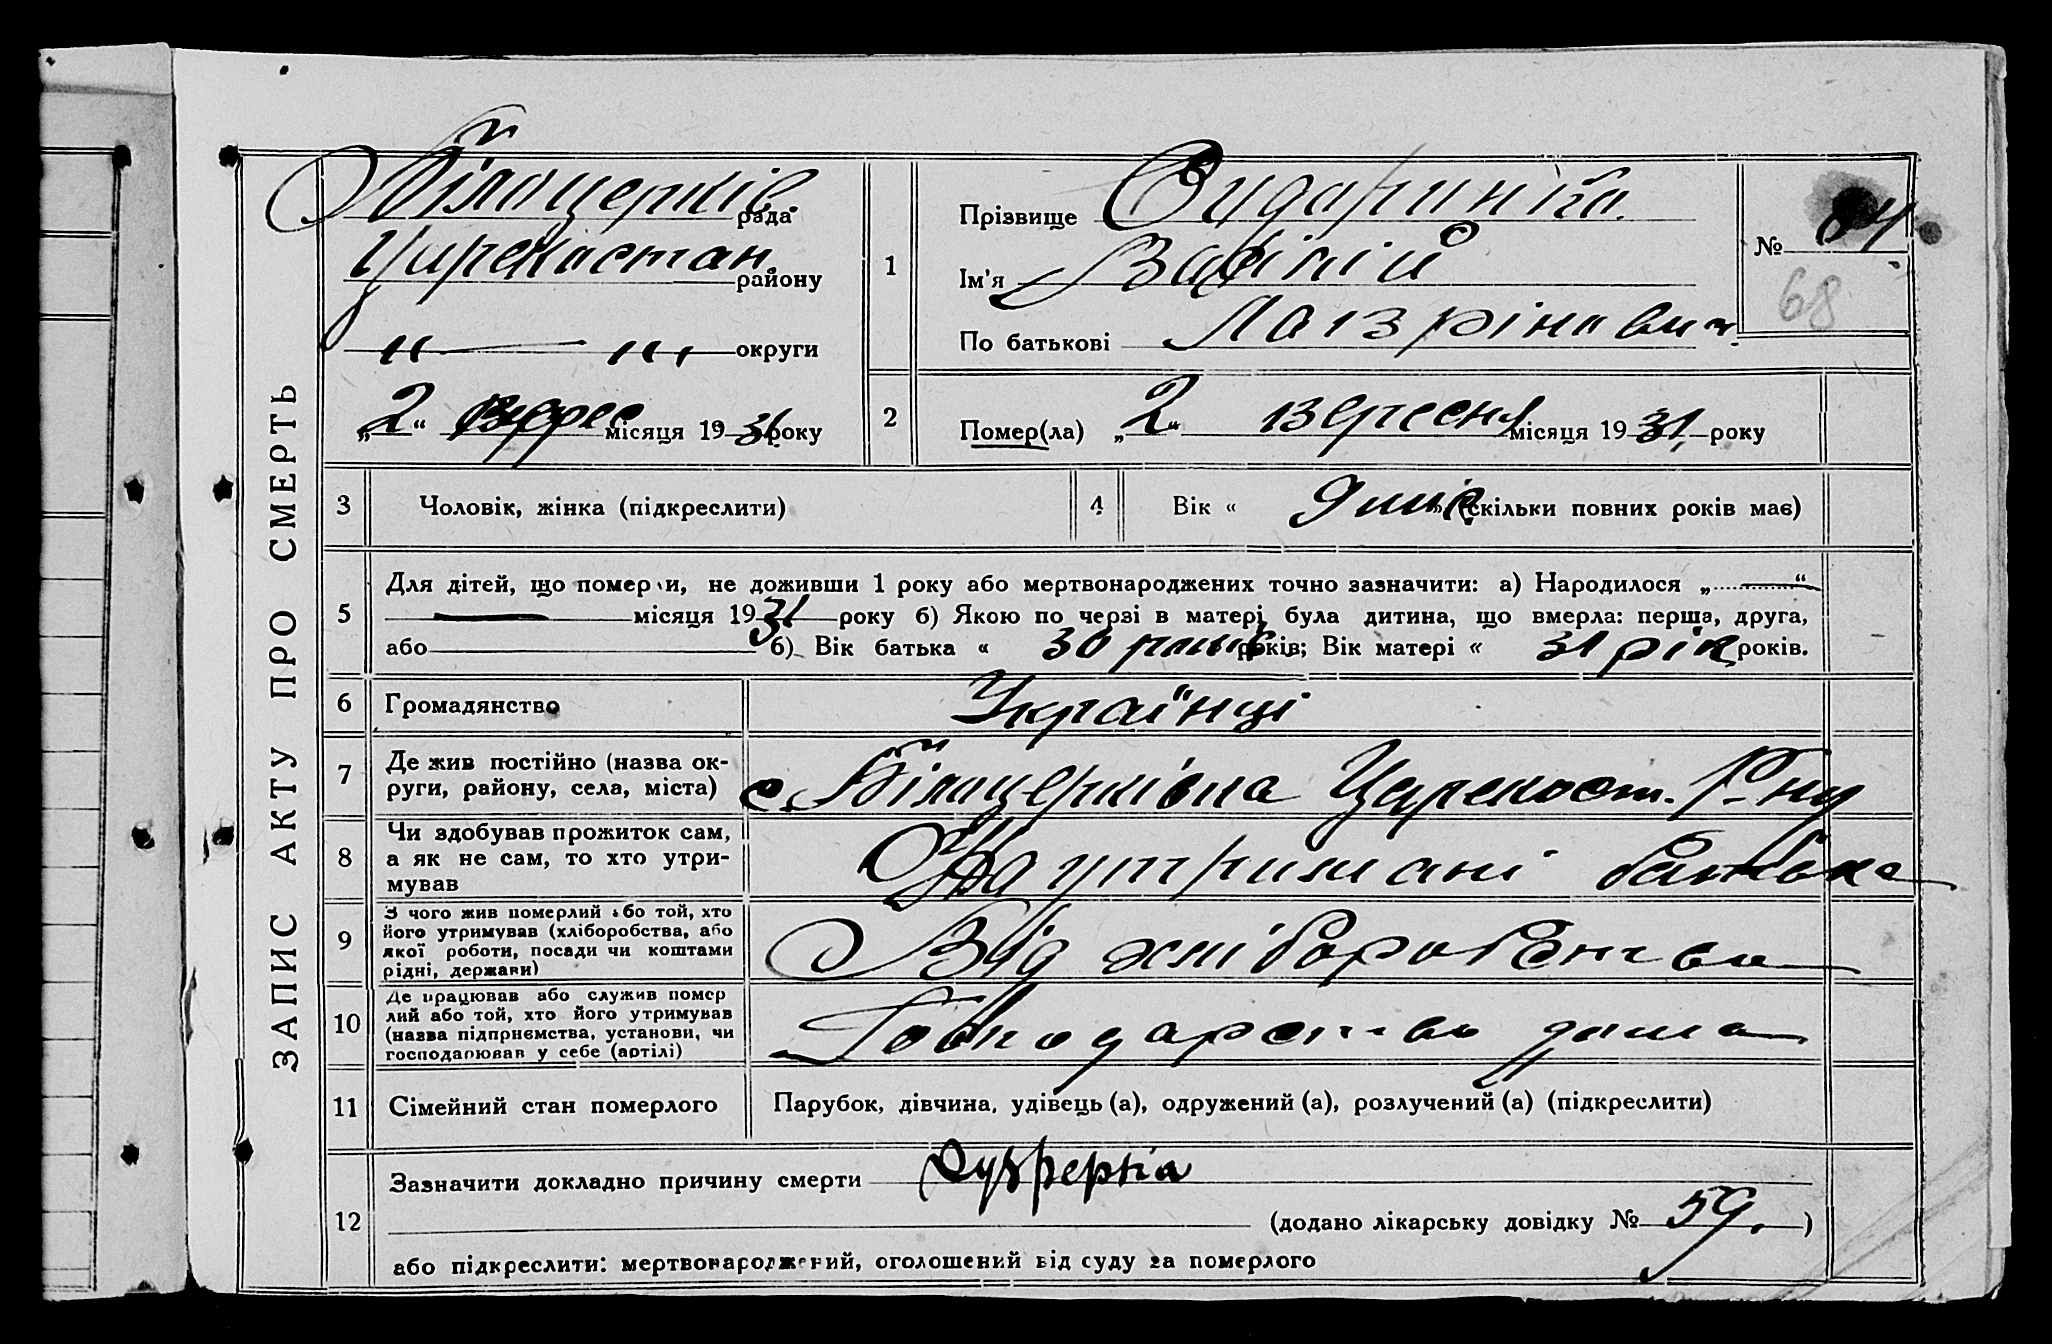 ЗАПИС АКТУ ПРО СМЕРТЬ
Білоцерків. рада
Цирекостан. району
„ — „ округи
„2“ верес місяця 1931 року
1
Прізвище
Ім'я Василій
По батькові
№ 84
68
2
Помер(ла) „2“ вересня місяця 1931 року
3 Чоловік, жінка (підкреслити)
4 Вік « 9 міс (скільки повних років має)
5 Для дітей, що померли, не доживши 1 року або мертвонароджених точно зазначити: а) Народилося „ — “
— місяця 1931 року б) Якою по черзі в матері була дитина, що вмерла: перша, друга,
або 3 б) Вік батька « 30 років; Вік матері « 31 рік років.
6 Громадянство Українці
7 Де жив постійно (назва ок-
руги, району, села, міста)
с. Білоцерківка Царекост. Р-ну
8 Чи здобував прожиток сам,
а як не сам, то хто утри-
мував
На утримані батька
9 З чого жив померлий або той, хто
його утримував (хліборобства, або
якої роботи, посади чи коштами
рідні, держави)
Від хліборобства
10 Де працював або служив помер
лий або той, хто його утримував
(назва підприємства, установи, чи
господарював у себе (артілі)
Господарство дома
11 Сімейний стан померлого Парубок, дівчина, удівець (а), одружений (а), розлучений (а) (підкреслити)
12 Зазначити докладно причину смерти
(додано лікарську довідку № 59. )
або підкреслити: мертвонароджений, оголошений від суду за померлого